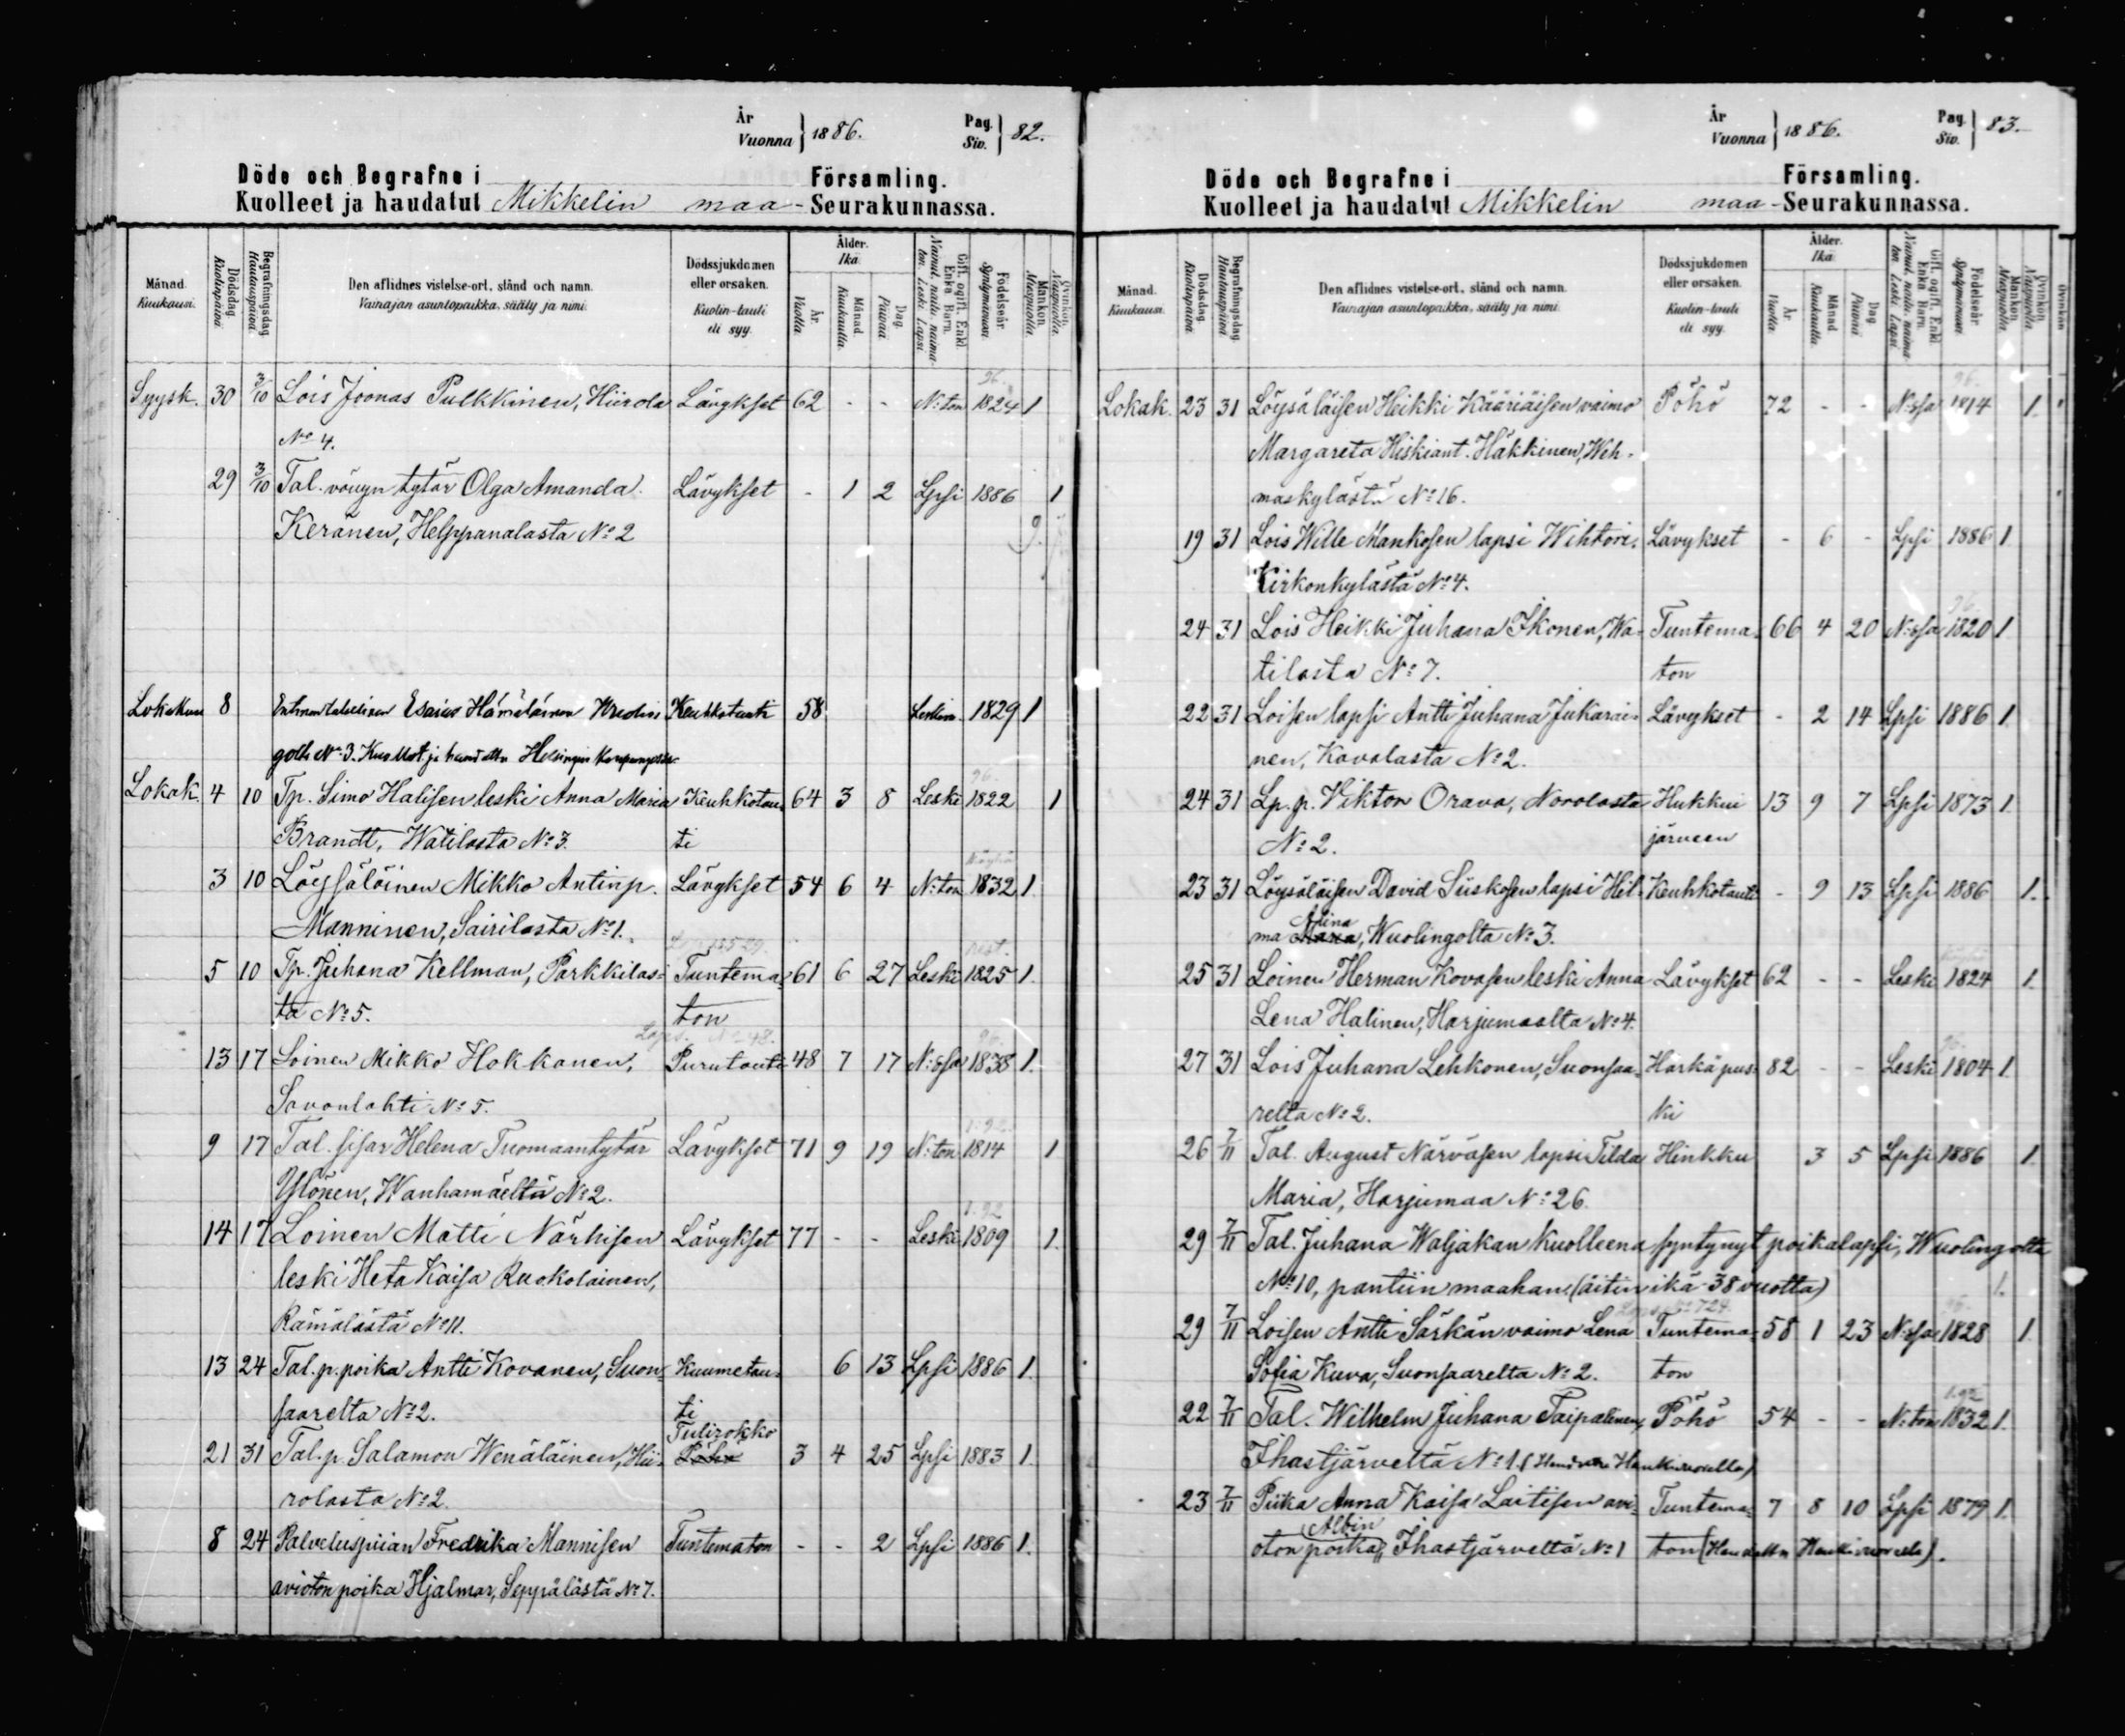 År
Vuonna } 1886.
Pag.
Siv. } 82.
Döde och Begrafne i Församling.
Kuolleet ja haudatut Mikkelin maa- Seurakunnassa.
Månad. Kuukausi.
Dödsdag. Kuolinpäivä.
Begrafningsdag. Hautauspäivä.
Den aflidnes vistelse-ort, stånd och namn.
Vainajan asuntopaikka, sääty ja nimi.
Dödssjukdomen eller orsaken.
Kuolin-tauti eli syy.
Ålder. Ikä.
År. Vuotta.
Månad. Kuukautta.
Dag. Päivää.
Gift, ogift, Enkl. Enka Barn.
Nainut, naima-ton, Leski, Lapsi.
Födelseår. Syntymävuosi.
Mankön. Miespuolia.
Qvinkön. Naispuolia.
Syysk. 30 3/10 Lois Joonas Pulkkinen, Hiirola Lävykset 62 - - N:ton 1824 1
No 4.
29 3/10 Tal. vävyn tytär Olga Amanda Lävykset - 1 2 Lpsi 1886 1
Keränen, Helppanalasta No 2
Lokakuu 8 Esaias Hämäläinen Keuhkotauti 58 Leskim. 1829 1
No 3. Kuollut ja haudattu Helsingin kaupungissa.
Lokak. 4 10 Tp. Simo Halisen leski Anna Maria Keuhkotau- 64 3 8 Leski 1822 1
Brandt, Watilasta No 3. ti
3 10 Löysäläinen Mikko Antinp. Lävykset 54 6 4 N:ton 1832 1.
Manninen, Sairilasta No 1.
5 10 Tp. Juhana Kellman, Parkkilas- Tuntema- 61 6 27 Leski 1825 1.
ta No 5. ton
13 17 Loinen Mikko Hokkanen, Purutauti 48 7 17 N:ssa 1838 1.
Savonlahti No 5.
9 17 Tal. sisar Helena Tuomaantytär Lävykset 71 9 19 N:ton 1814 1
Ylönen, Wanhamäeltä No 2.
14 17 Loinen Matti Närhisen Lävykset 77 - - Leski 1809 1.
leski Heta Kaisa Ruokolainen,
Rämälästä No 11.
13 24 Tal. p. poika Antti Kovanen, Suon- Kuumetau- 6 13 Lpsi 1886 1.
saarelta No 2. ti
Tulirokko
21 31 Tal. p. Salamon Wenäläinen, Hii- 3 4 25 Lpsi 1883 1.
rolasta No 2.
8 24 Palveluspiian Fredrika Mannisen Tuntematon - - 2 Lpsi 1886 1.
avioton poika Hjalmar, Seppälästä No 7.
År
Vuonna } 1886.
Pag.
Siv. } 83.
Döde och Begrafne i Församling.
Kuolleet ja haudatut Mikkelin maa- Seurakunnassa.
Månad. Kuukausi.
Dödsdag. Kuolinpäivä.
Begrafningsdag. Hautauspäivä.
Den aflidnes vistelse-ort, stånd och namn.
Vainajan asuntopaikka, sääty ja nimi.
Dödssjukdomen eller orsaken.
Kuolin-tauti eli syy.
Ålder. Ikä.
År. Vuotta.
Månad. Kuukautta.
Dag. Päivää.
Gift, ogift, Enkl. Enka Barn.
Nainut, naima-ton, Leski, Lapsi.
Födelseår. Syntymävuosi.
Mankön. Miespuolia.
Qvinkön. Naispuolia.
Lokak. 23 31 Löysäläisen Heikki Kääriäisen vaimo Pöhö 72 - - N:ssa 1814 1.
Margareta Hiskiant. Häkkinen, Weh-
maskylästä No 16.
19 31 Lois Wille Mankosen lapsi Wihtori. Lävykset - 6 - Lpsi 1886 1
Kirkonkylästä No 4.
24 31 Lois Heikki Juhana Ikonen, Wa- Tuntema- 66 4 20 N:ssa 1820 1
tilasta No 7. ton
22 31 Loisen lapsi Antti Juhana Jukarai- Lävykset - 2 14 Lpsi 1886 1
nen, Kovalasta No 2.
24 31 Lp. p. Viktor Orava, Norolasta Hukkui 13 9 7 Lpsi 1873 1.
No 2. järveen
23 31 Löysäläisen David Siiskosen lapsi Hil- Keuhkotauti - 9 13 Lpsi 1886 1.
ma Alina, Wuolingolta No 3.
25 31 Loinen Herman Kovasen leski Anna Lävykset 62 - - Leski 1824 1.
Lena Halinen, Harjumaalta No 4.
27 31 Lois Juhana Lehkonen, Suonsaa- Härkäpus- 82 - - Leski 1804 1
relta No 2. ki
26 7/11 Tal. August Närväsen lapsi Tilda Hinkku 3 5 Lpsi 1886 1.
Maria, Harjumaa No 26.
29 7/11 Tal. Juhana Waljakan kuolleena syntynyt poikalapsi, Wuolingolta
No 10, pantiin maahan. (äitin ikä 38 vuotta) 1.
29 7/11 Loisen Antti Särkän vaimo Lena Tuntema- 58 1 23 N:ssa 1828 1.
Sofia Kuva, Suonsaarelta No 2. ton
22 7/11 Tal. Wilhelm Juhana Taipalinen, Pöhö 54 - - N:ton 1832 1.
Ihastjärveltä No 1.
23 7/11 Piika Anna Kaisa Laitisen avi- Tuntema- 7 8 10 Lpsi 1879 1.
Albin
oton poika, Ihastjärveltä No 1 ton